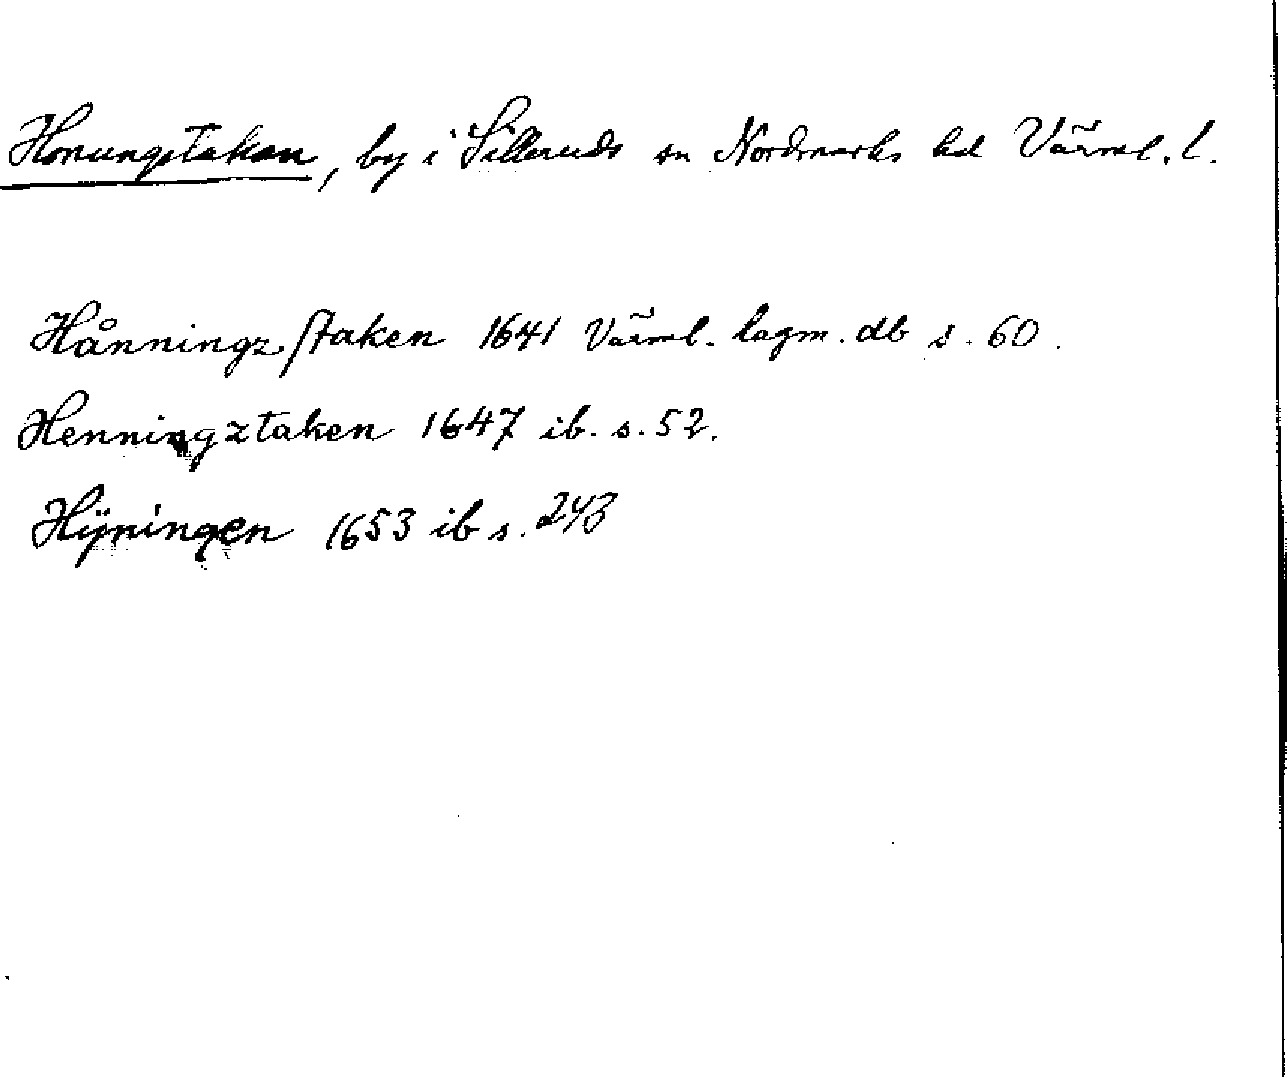 Honungstakan, by i Silleruds sn Nordmarks hd Värml. l.
Hånningzstaken 1641 Värml. lagm. db s. 60.
Henningztaken 1647 ib. s. 52.
Hÿningen 1653 ib s. 243